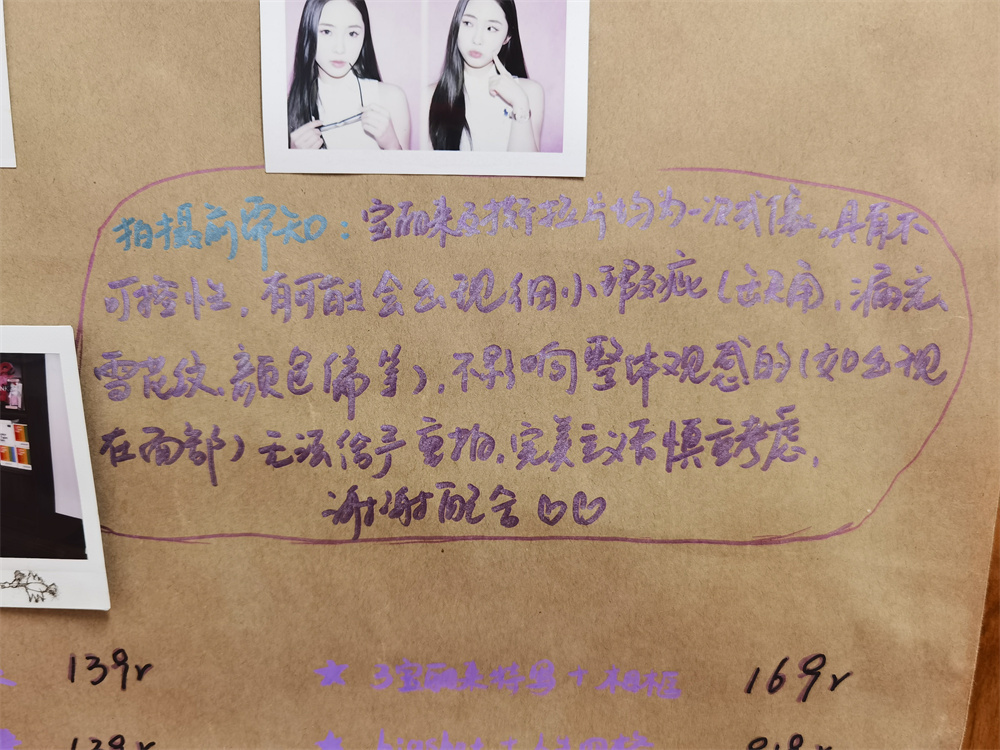 拍摄前需知：宝丽来及撕拉片均为一次成像，具有不
可控性，有可能会出现细小瑕疵（缺角，漏光、
雪花纹、颜色偏差），不影响整体观感的（如出现
在面部）无法给予重拍，完美主义不慎重考虑，
谢谢配合
139r
★ 3宝丽来特写 + 相框
169r